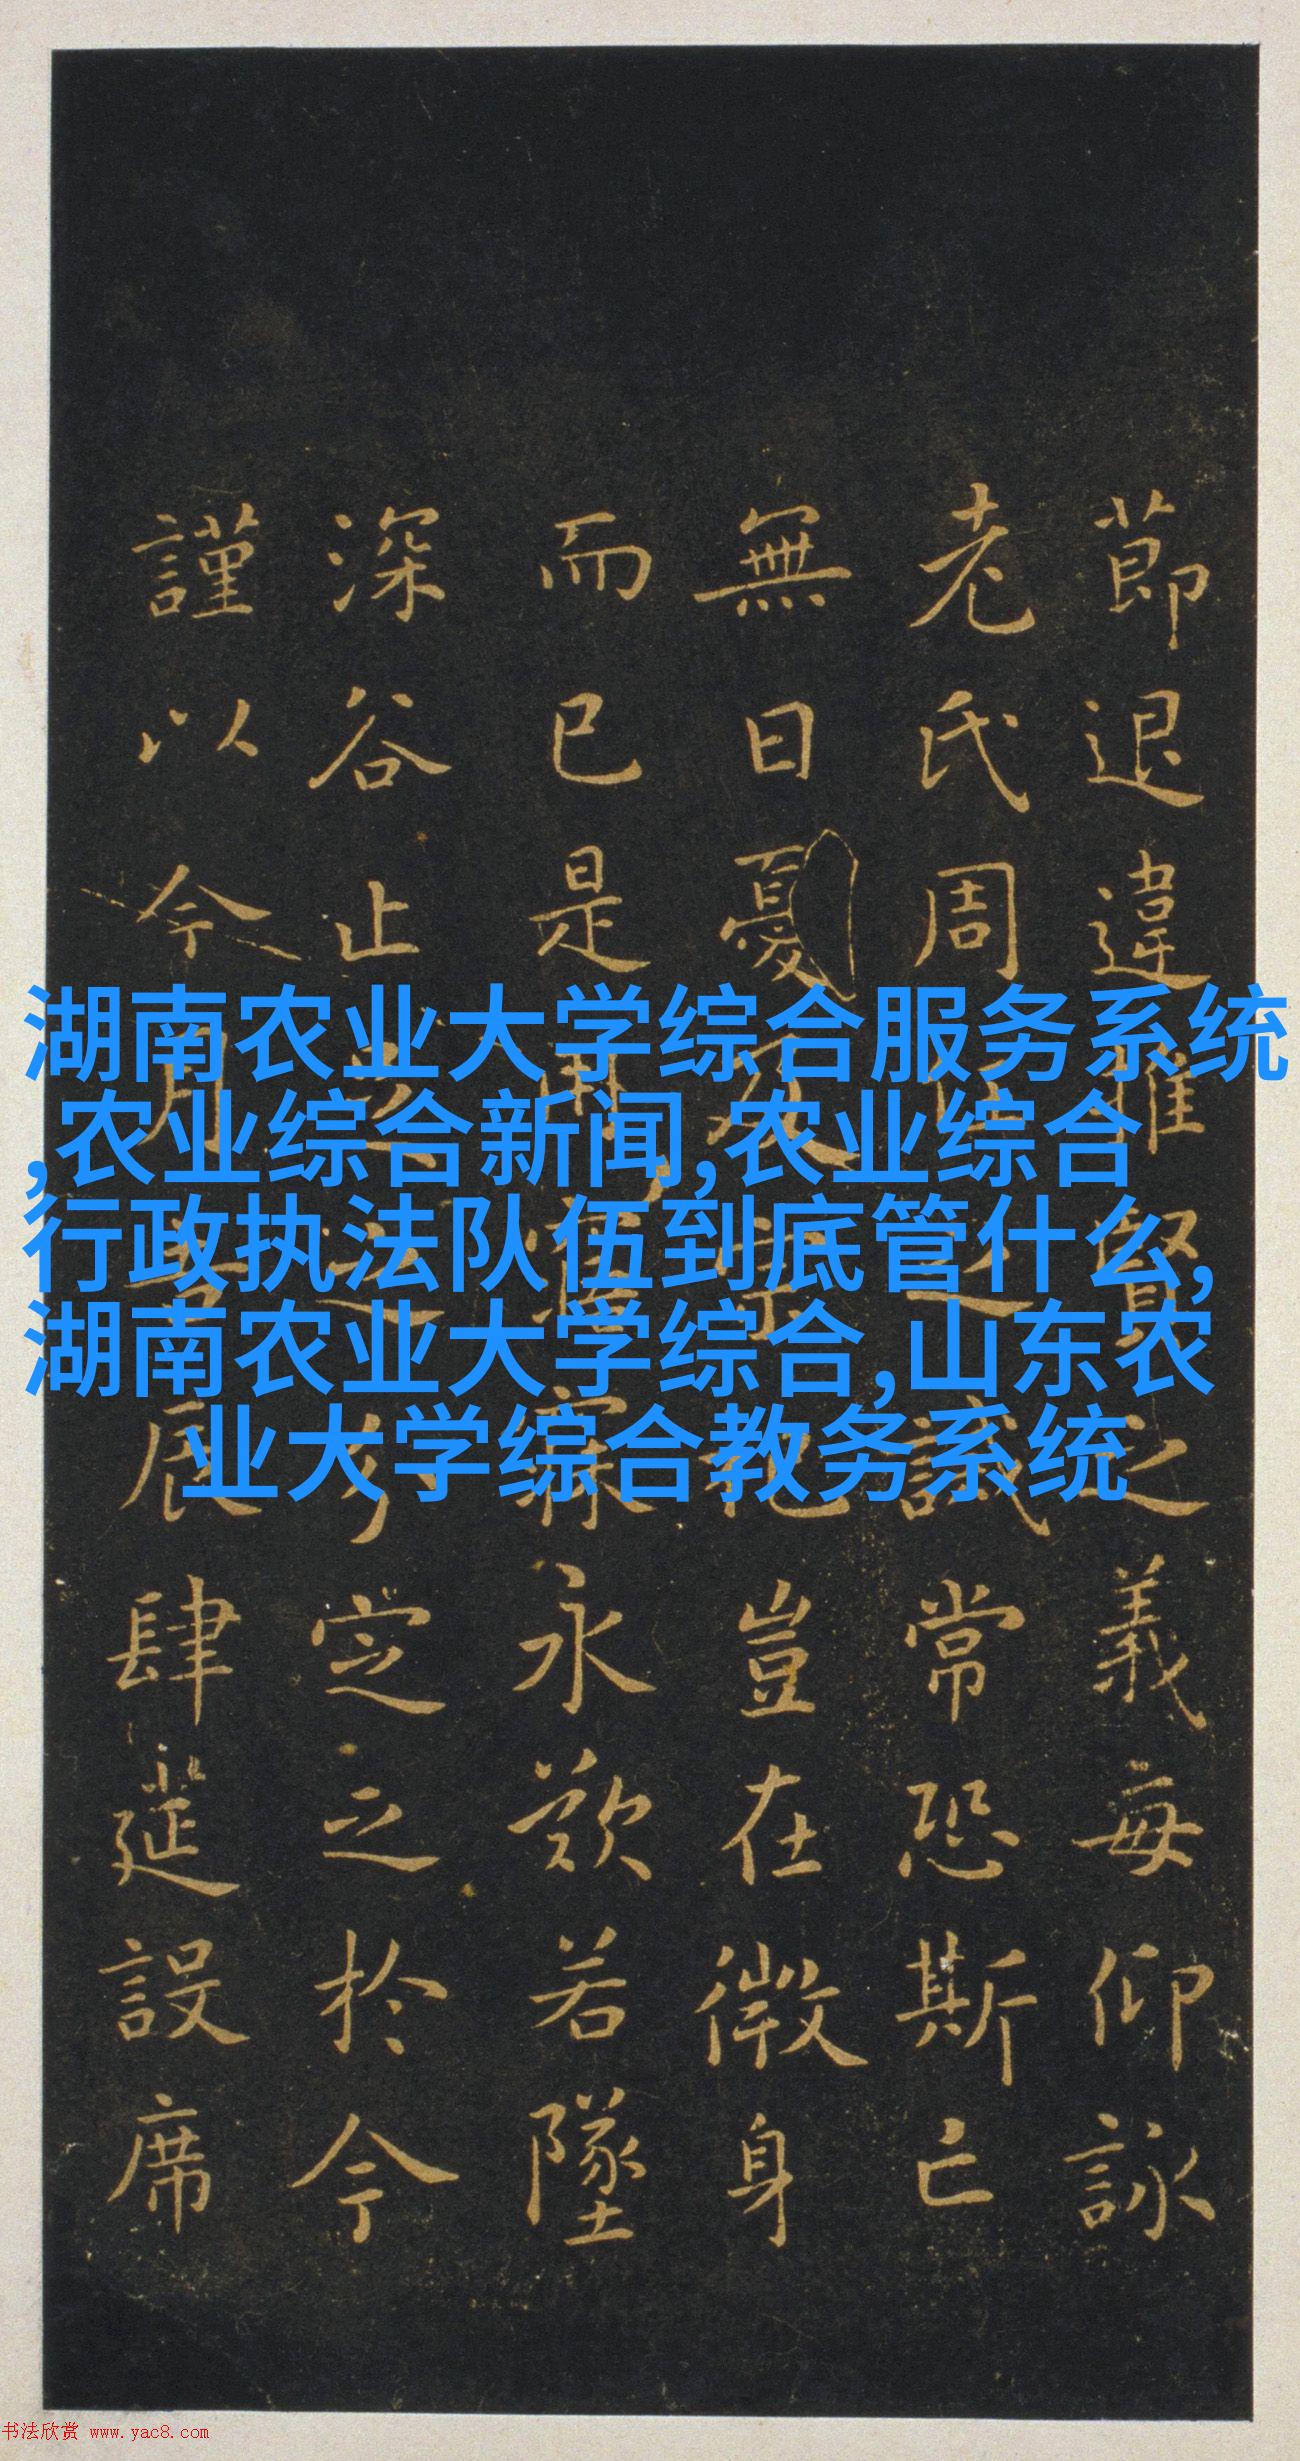 湖南农业大学综合服务系统
,农业综合新闻,农业综合
行政执法队伍到底管什么,
湖南农业大学综合,山东农
业大学综合教务系统
莭退違推賢之義每仰詠
老氏周之誡常恐斯亡
無日憂及祀豈在微身
而已是寐永歎若墜
深谷止之分定之於今
謹以今月辰肆莚設席
书法欣赏 www.yac8.com